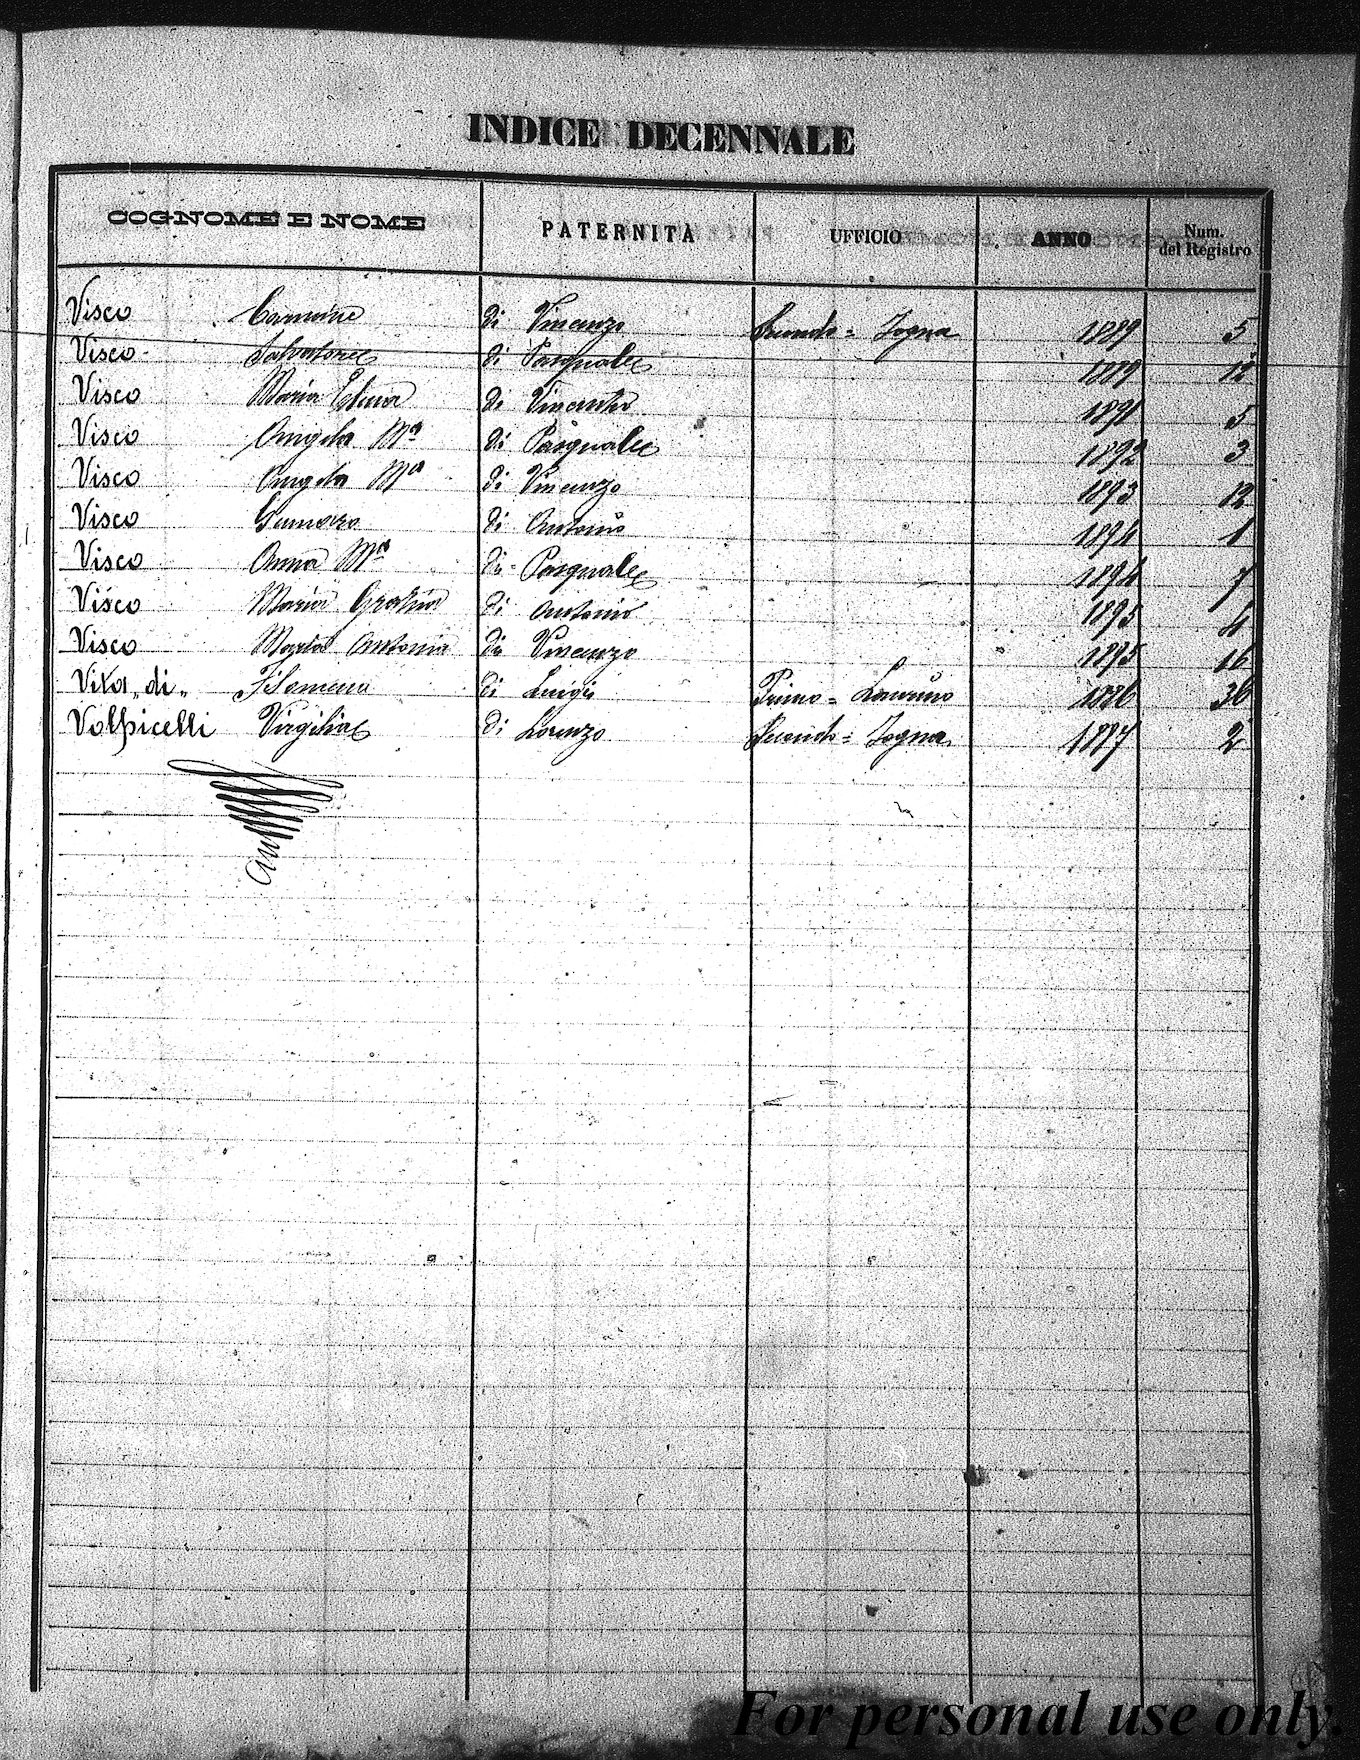 INDICE DECENNALE
COGNOME E NOME PATERNITÀ UFFICIO ANNO Num. del Registro
Visco Carmine di Vincenzo Secondo = Togna 1889 5
Visco Salvatore di Pasquale 1889 12
Visco Maria di Vincenzo 1891 5
Visco Angela Mª di Pasquale 1892 3
Visco Angela Mª di Vincenzo 1893 12
Visco Gennaro di Antonio 1894 1
Visco Anna Mª di Pasquale 1894 7
Visco Maria Grazia di Antonio 1895 4
Visco Maria Antonia di Vincenzo 1895 16
Vita „di„ Filomena di Luigi Primo = Laurino 1886 36
Volpicelli Virgilia di Lorenzo Secondo = Togna 1887 2
For personal use only.